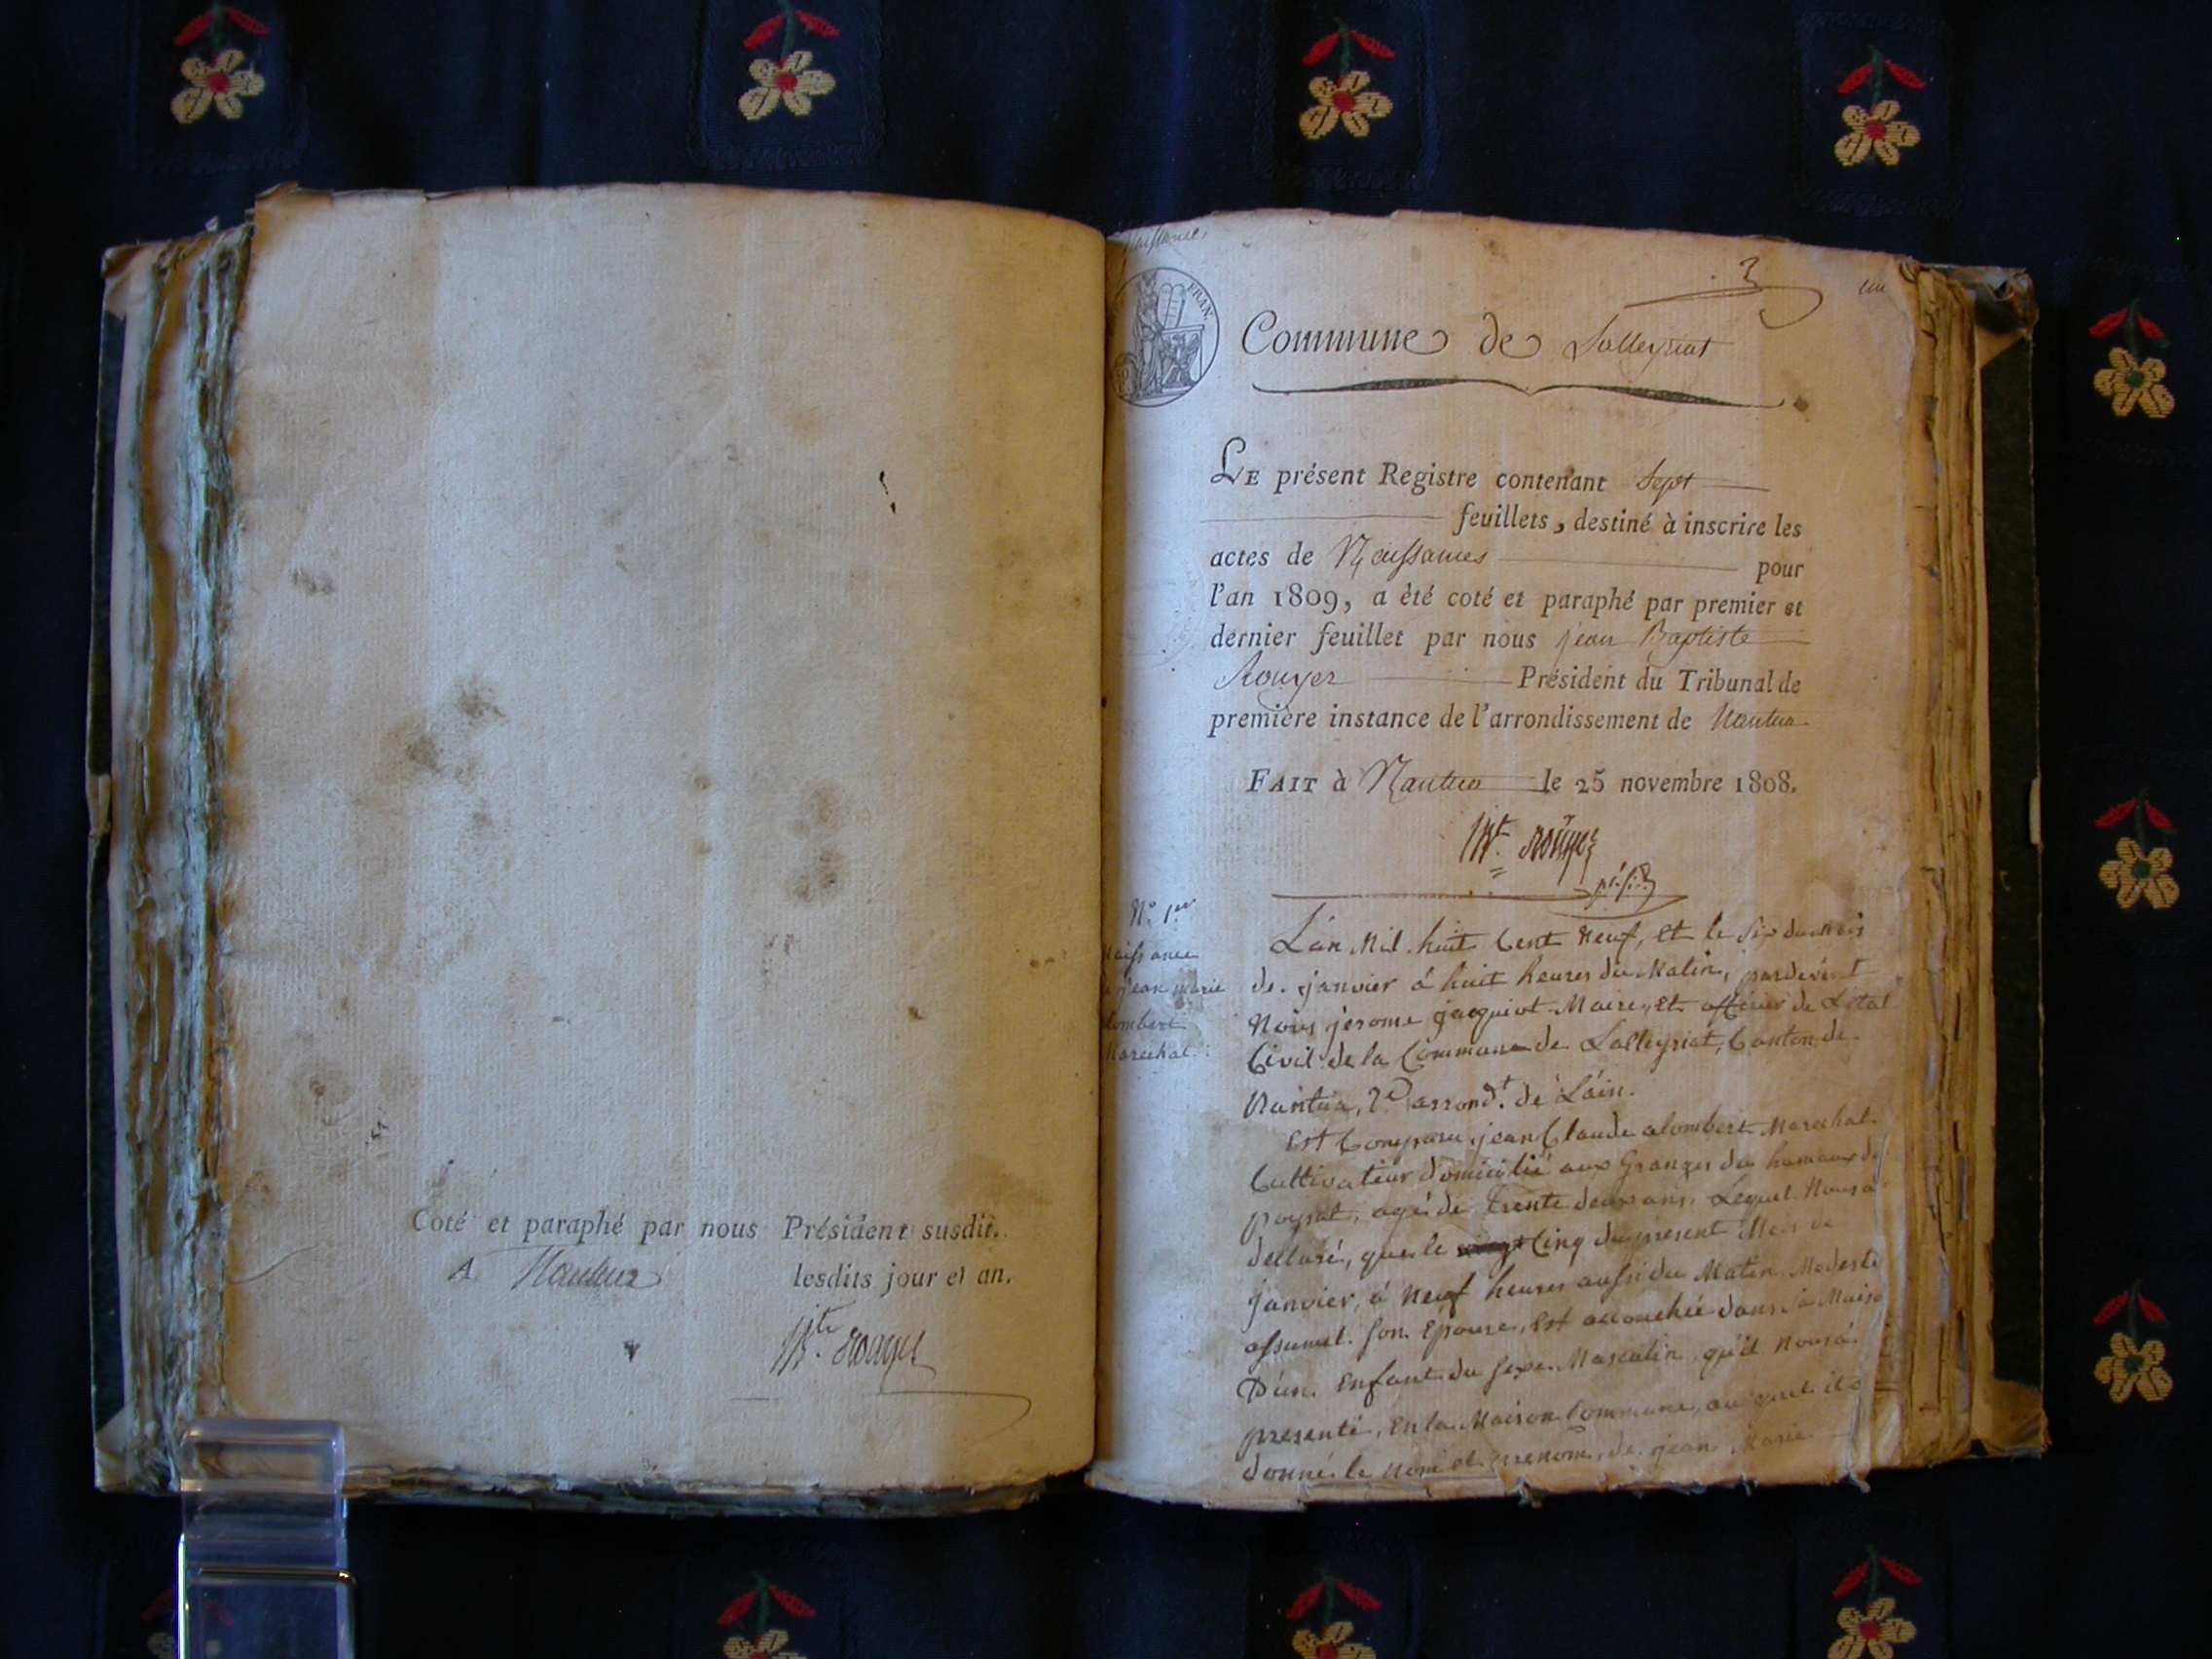 Coté et paraphé par nous Président susdit.
A Nantua lesdits jour et an.
JB.te Rouyer
Naissances
FRAN.
3
un
Commune de Lalleyriat
LE présent Registre contenant Sept
feuillets, destiné à inscrire les
actes de Naissances pour
l'an 1809, a été coté et paraphé par premier et
dernier feuillet par nous jean Baptiste
Rouyer Président du Tribunal de
première instance de l'arrondissement de Nantua
FAIT à Nantua le 25 novembre 1808.
JB.t Rouyer
présid
N.o 1.er
Naissance
jean marie
lombert
Marechal.
L'an Mil huit Cent Neuf, Et le Six du Mois
de janvier à huit heures du Matin, pardevant
Nous jerome jacquiot Maire, Et officier de L'état
Civil de la Commune de Lalleyriat, Canton de
Nantua, 2.e arrond.t de L'ain.
Est Comparu jean Claude alombert Marechal.
Cultivateur domicilié aux Granges du hameau de
poysat, agé de trente deux ans, Lequel Nous a
declaré, que le Cinq du present Mois de
janvier, à Neuf heures aussi du Matin, Modeste
assumel son Epouse, Est accouchée dans sa Maiso
D'un Enfant du sexe Masculin, qu'il Nous a
presenté, En la Maison Commune, au quel il a
donné le nom et prenom, de jean Marie